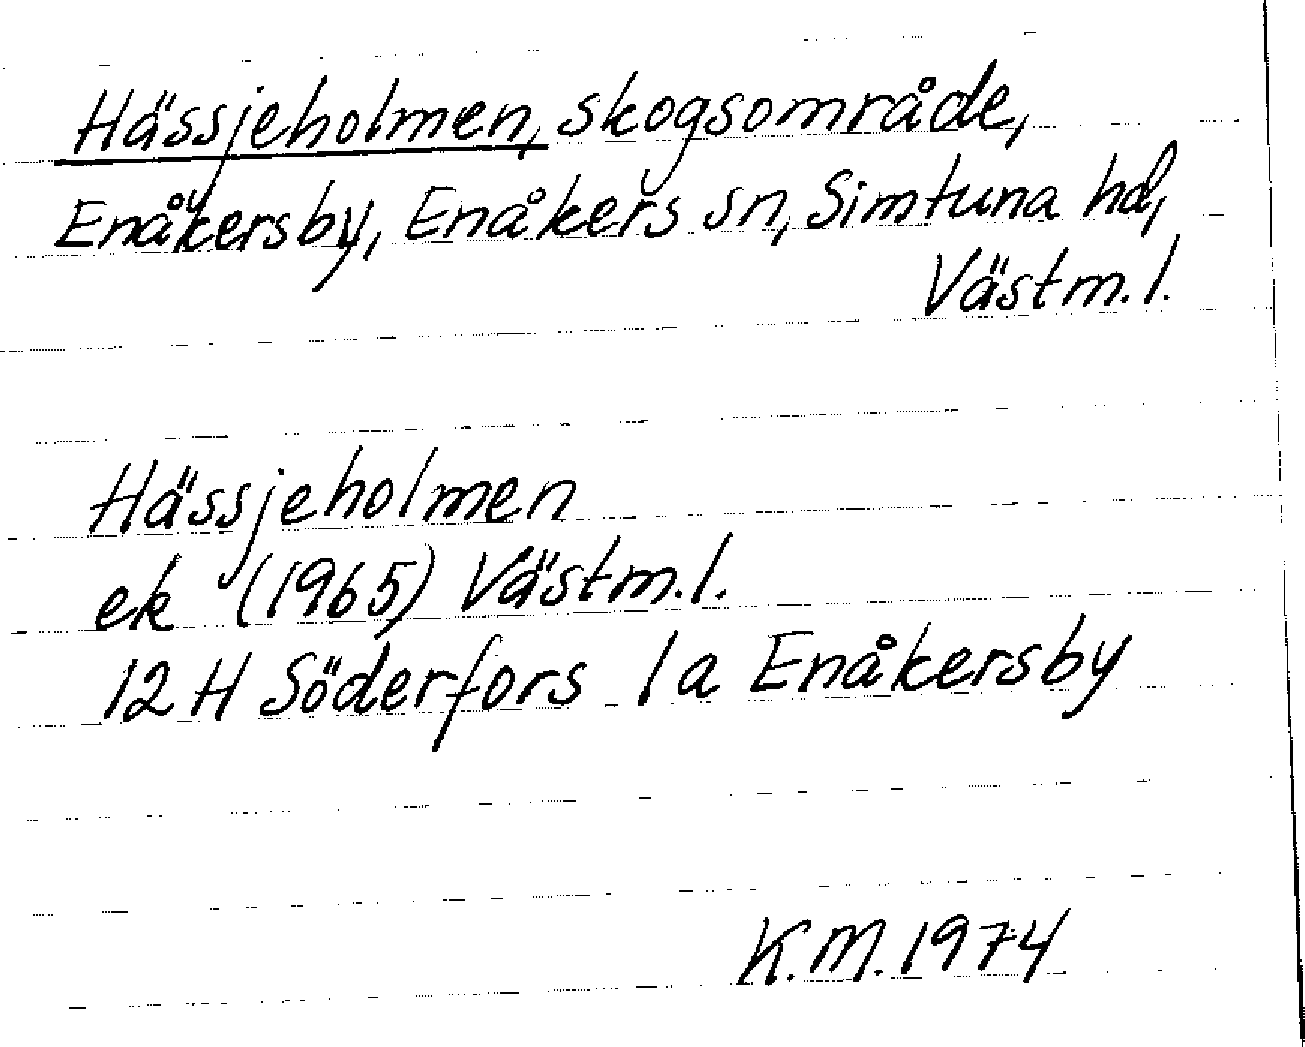 Hässjeholmen, skogsområde,
Enåkersby, Enåkers sn, Simtuna hd,
Västm.l.
Hässjeholmen
ek (1965) Västm.l.
12 H Söderfors 1 a Enåkersby
K.M. 1974